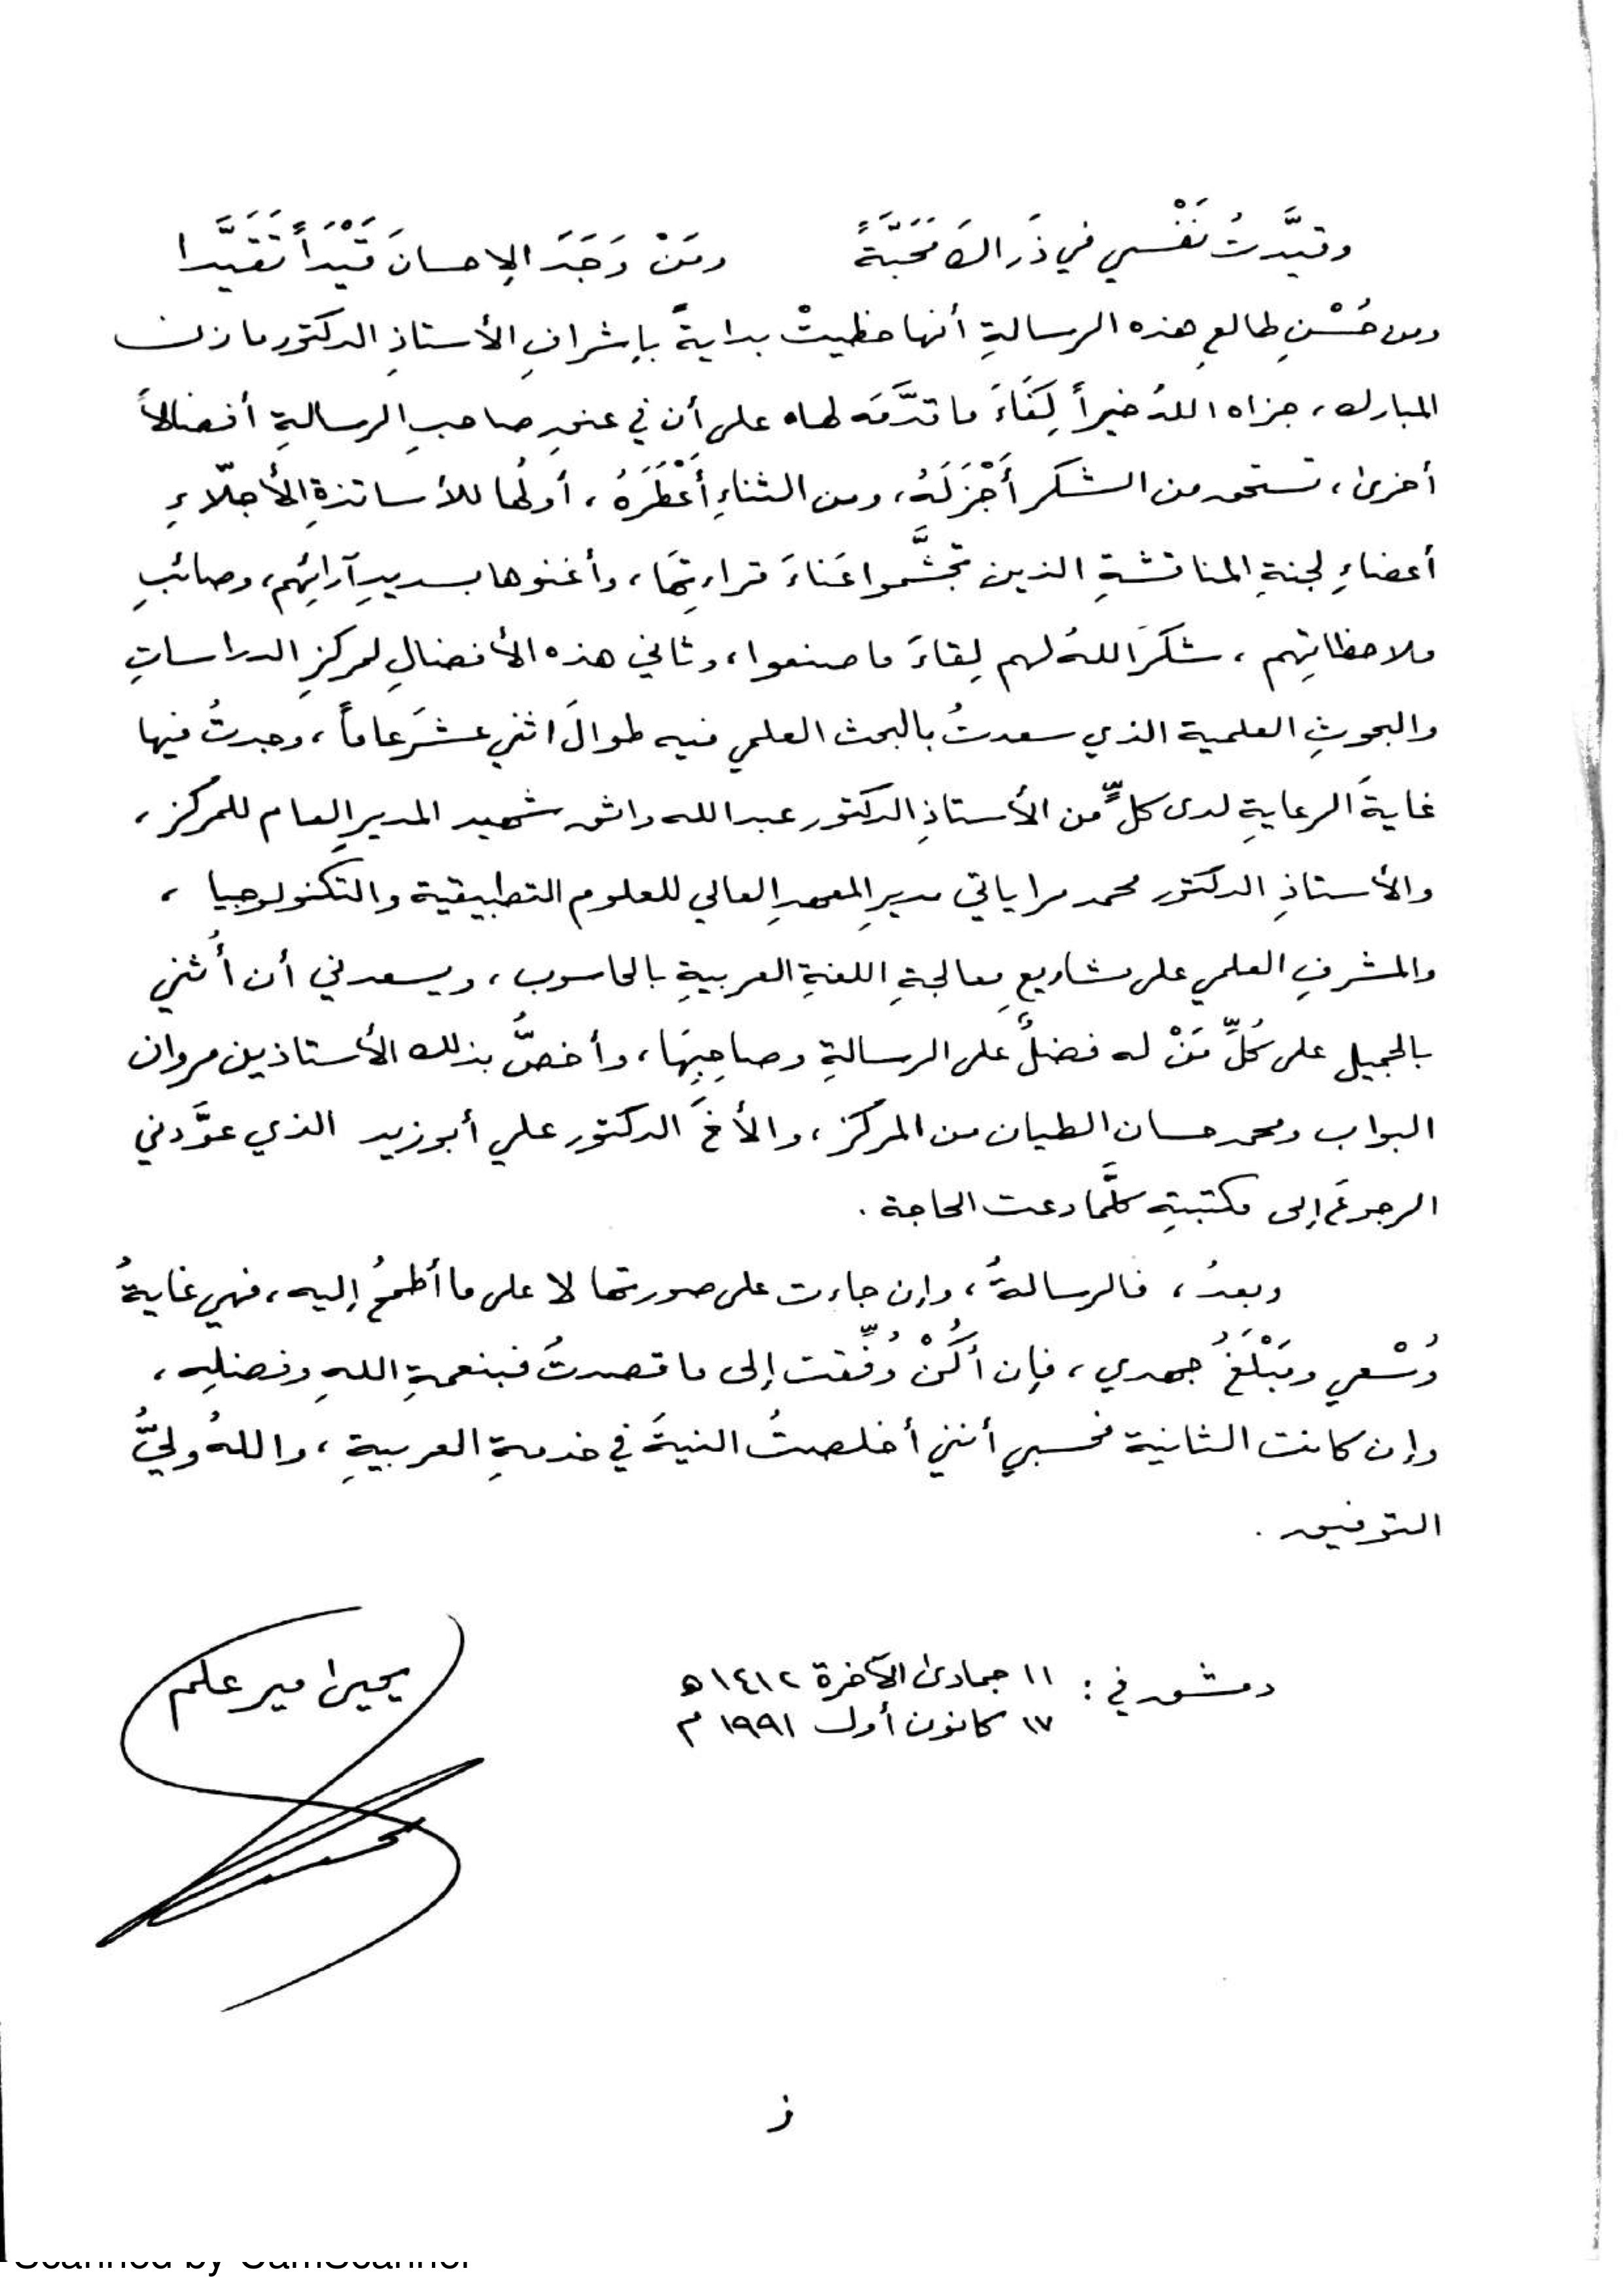 وقيَّدتُ نَفْسي في ذَراكَ مَحَبَّةً ومَنْ وَجَدَ الإحسانَ قَيْدَاً تَقَيَّدا
ومن حُسْنِ طالعِ هذه الرسالةِ أنها حظيتْ بدايةً بإشرافِ الأستاذِ الدكتور مازن
المبارك، جزاه اللهُ خيراً لِقَاءَ ما قدَّمَه لها، على أن في عنقِ صاحبِ الرسالةِ أفضالاً
أخرىٰ، تستحق من الشكر أَجْزَلَهُ، ومن الثناءِ أَعْطَرَهُ، أولُها للأساتذةِ الأجلّاءِ
أعضاءِ لجنةِ المناقشةِ الذين تجشَّموا عَناءَ قراءتِها، وأغنوها بسديدِ آرائِهم، وصائبِ
ملاحظاتِهم، شكَرَ اللهُ لهم لِقاءَ ما صنعوا، وثاني هذه الأفضالِ لمركزِ الدراساتِ
والبحوثِ العلمية الذي سعدتُ بالبحث العلمي فيه طوالَ اثني عشَرَ عاماً، وجدتُ فيها
غايةَ الرعايةِ لدى كلٍّ من الأستاذِ الدكتور عبدالله واثق شهيد المديرِ العام للمركز،
والأستاذِ الدكتور محمد مراياتي مديرِ المعهدِ العالي للعلوم التطبيقية والتكنولوجيا،
والمشرفِ العلمي على مشاريعِ معالجةِ اللغةِ العربيةِ بالحاسوب، ويسعدني أن أُثني
بالجميل على كُلِّ مَنْ له فضلٌ على الرسالةِ وصاحِبِها، وأخصُّ بذلك الأستاذين مروان
البواب ومحمد حسان الطيان من المركز، والأخَ الدكتور علي أبوزيد الذي عوَّدني
الرجوعَ إلى مكتبتِه كلَّما دعت الحاجة.
وبعدُ، فالرسالةُ، وإن جاءت على صورتها لا على ما أطمحُ إليه، فهي غايةُ
وُسْعي ومَبْلَغُ جهدي، فإن أَكُنْ وُفِّقت إلى ما قصدتُ فبنعمةِ اللهِ وفضلِه،
وإن كانت الثانية فحسبي أنني أخلصتُ النيةَ في خدمةِ العربيةِ، واللهُ وليُّ
التوفيق.
دمشق في: ١١ جمادىٰ الآخرة ١٤١٢ ه
١٧ كانون أول ١٩٩١ م
يحيىٰ مير علم
ز
Scanned by CamScanner